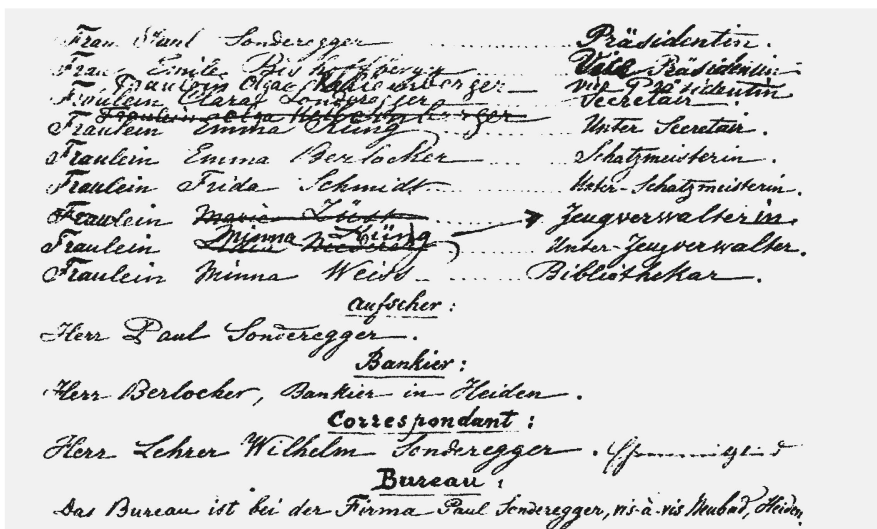 Frau Paul Sonderegger ............ Präsidentin.
Frau Emile Bischofberger Vice Präsidentin
Fraulein Olga Hohlenberger vice Präsidentin
Fraulein Clara Sonderegger Secretair.
Fraulein Olga
Fraulein Emma Küng ...... Unter Secretair.
Fraulein Emma Berlocker ...... Schatzmeisterin.
Fraulein Frida Schmidt ...... Unter-Schatzmeisterin.
Fraulein Marie Züst Zeugverwalterin
Fraulein Minna Küng ...... Unter-Zeugverwalter.
Fraulein Minna Weiss ...... Bibliothekar.
Aufseher:
Herr Paul Sonderegger.
Bankier:
Herr Berlocher, Bankier in Heiden.
Correspondant:
Herr Lehrer Wilhelm Sonderegger.
Bureau:
Das Bureau ist bei der Firma Paul Sonderegger, vis-à-vis Neubad, Heiden,